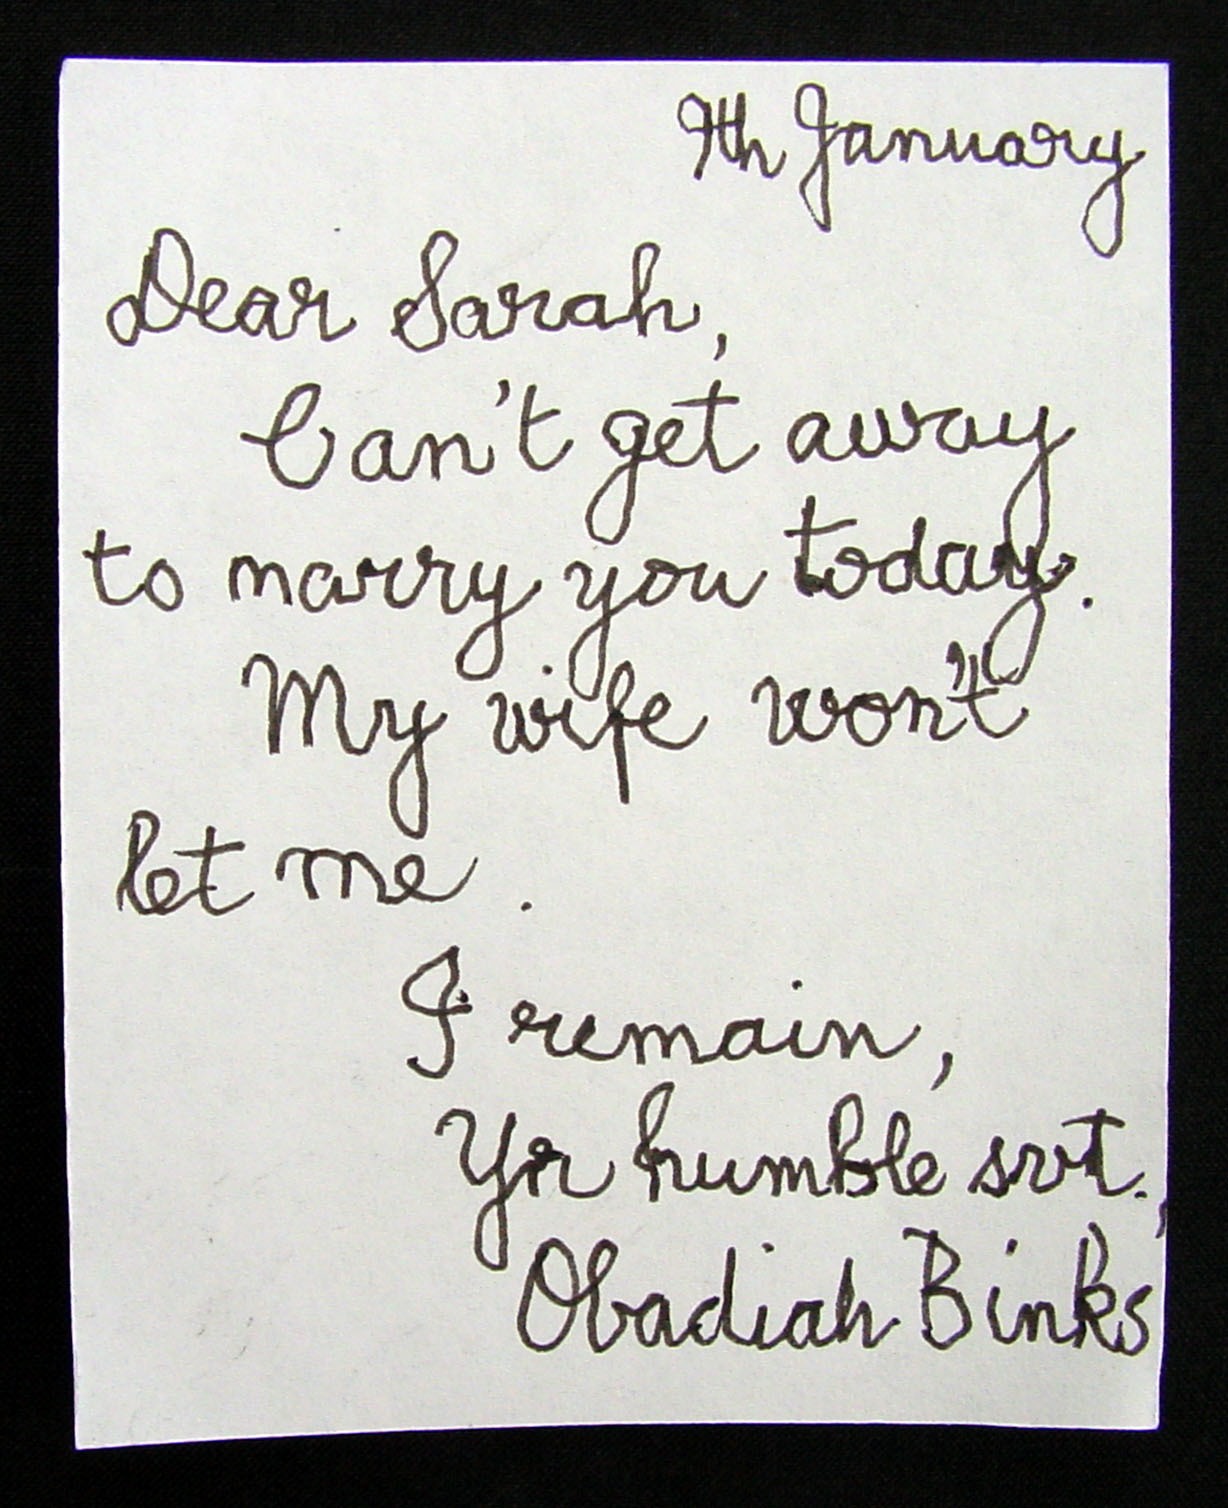 9th January
Dear Sarah,
Can't get away
to marry you today.
My wife won't
let me.
I remain,
Yr humble svt.,
Obadiah Binks